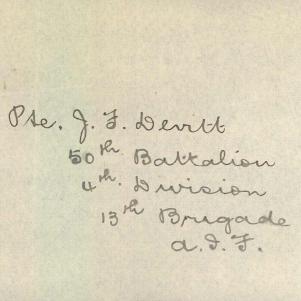 Pte. J. F. Devitt
50th Battalion
4th. Division
13th Brigade
A.I.F.